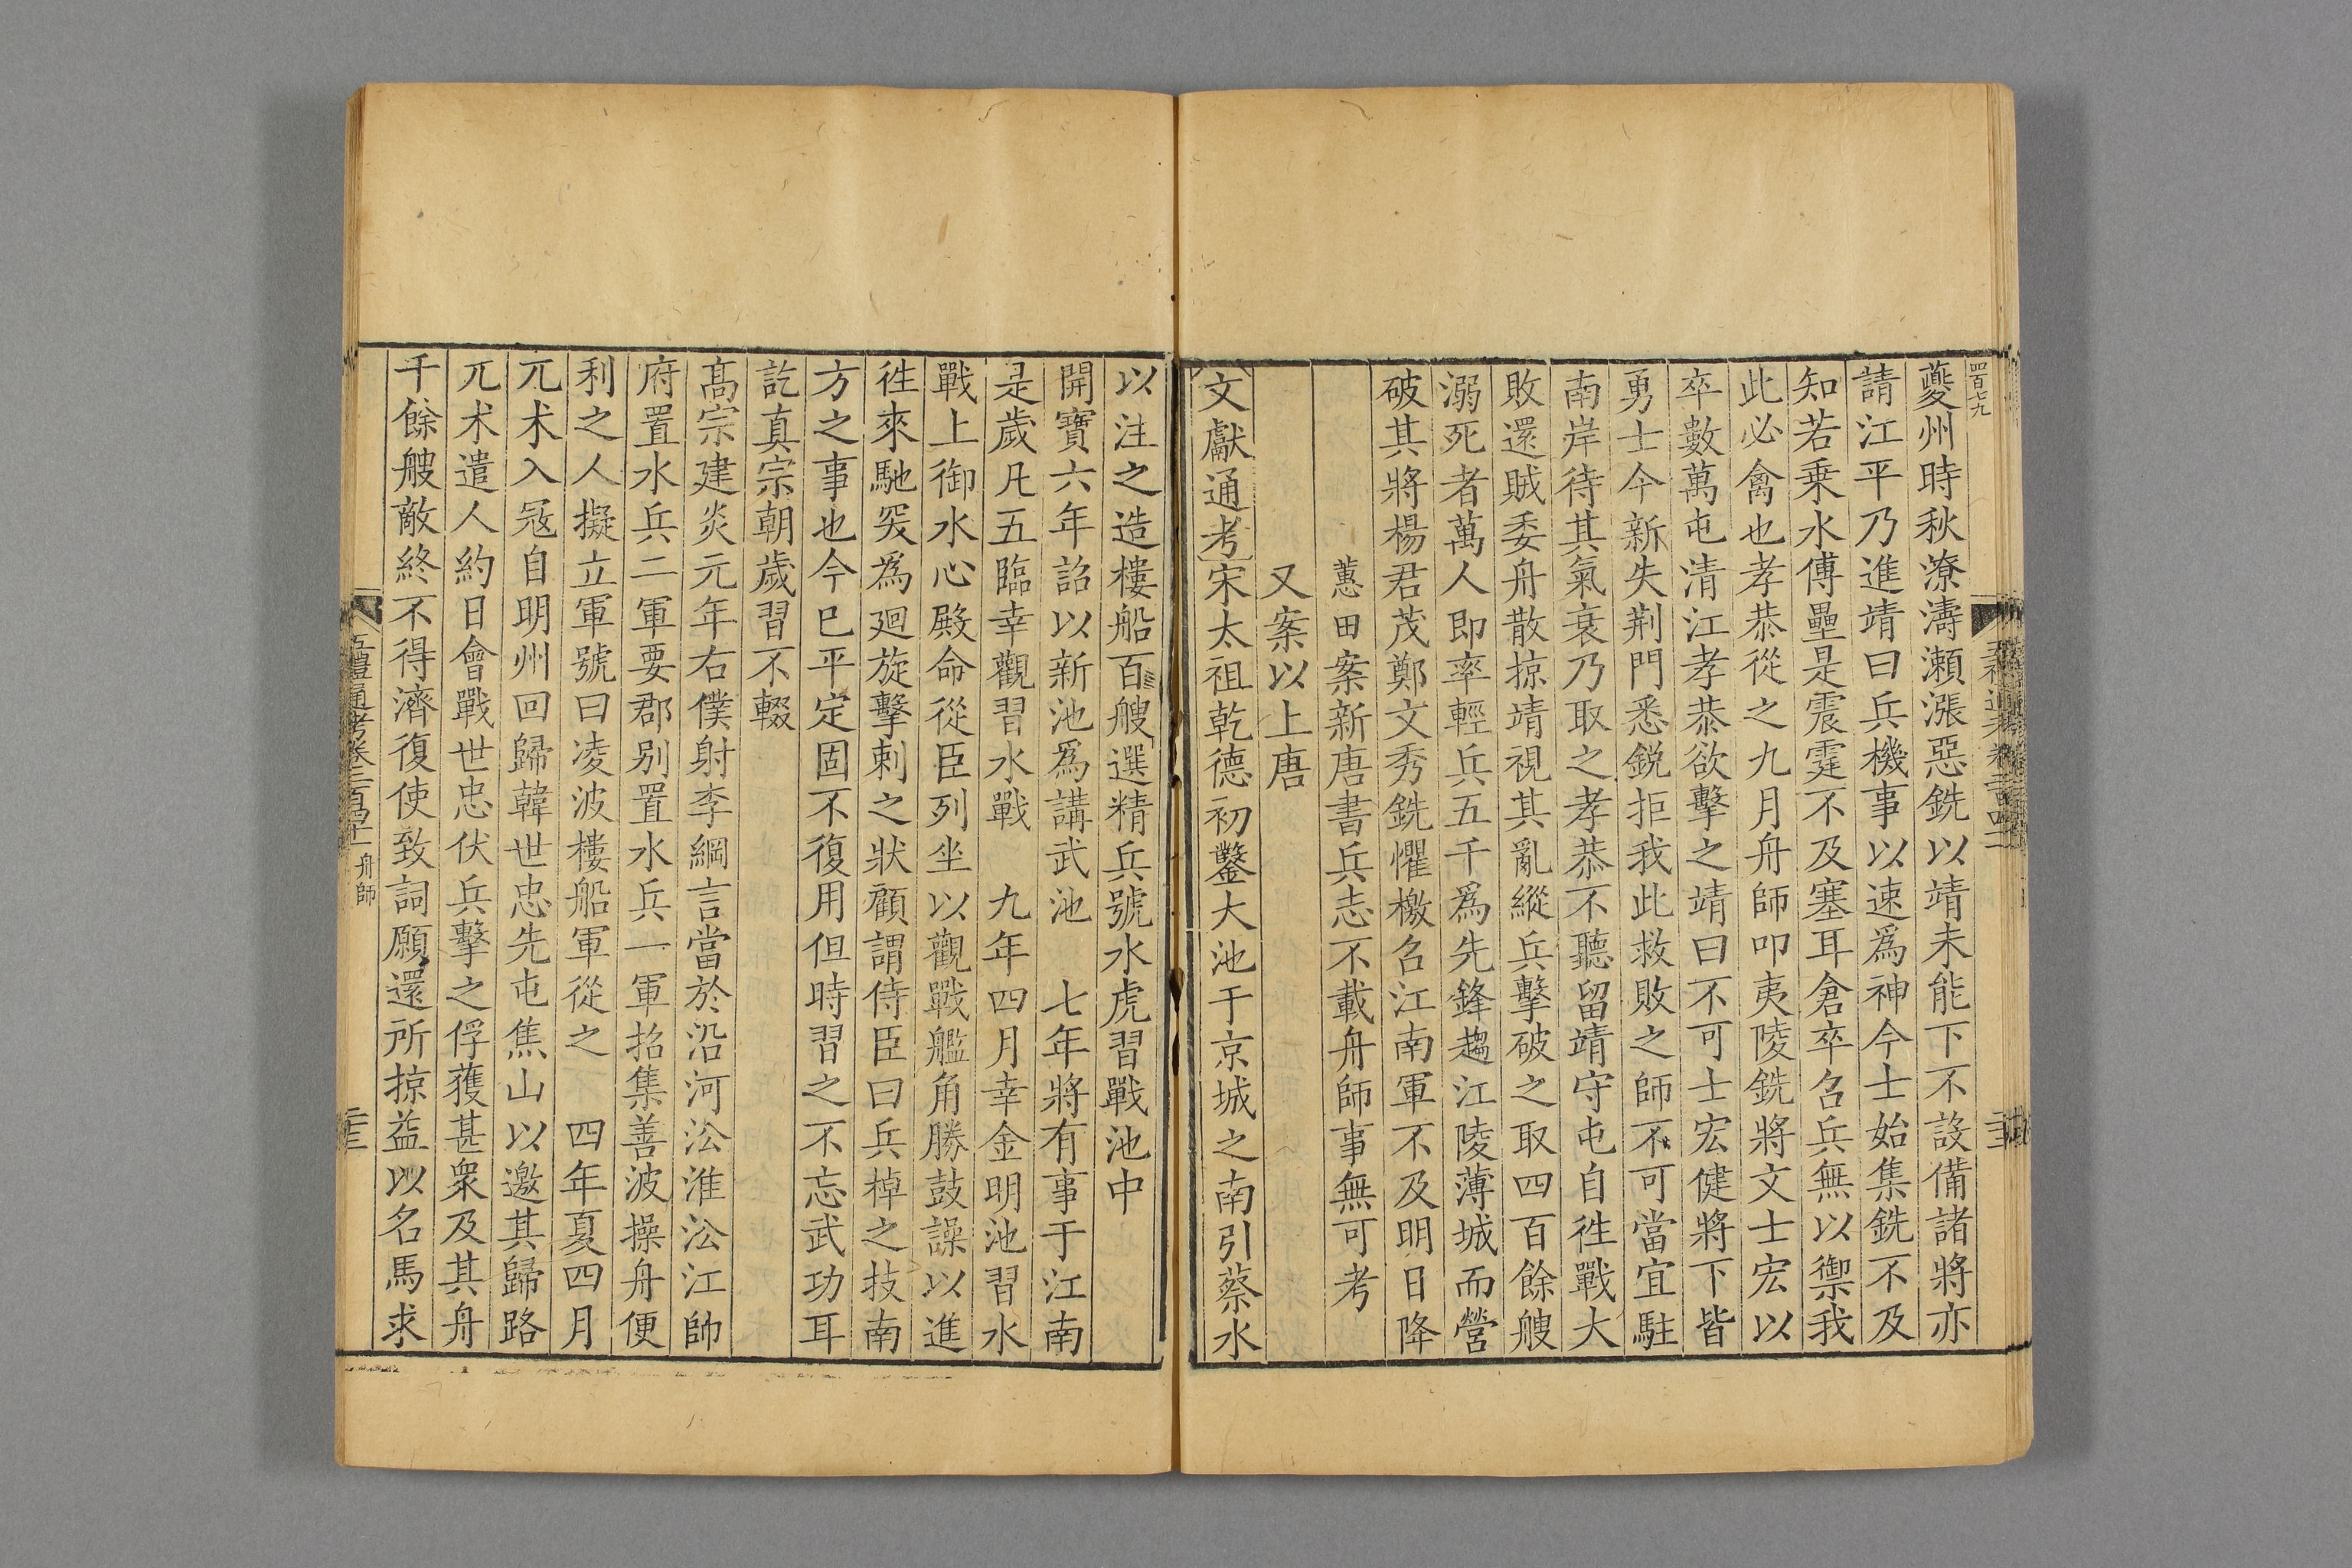 四百七九
夔州時秋潦濤瀨漲惡銑以靖未能下不設備諸將亦
請江平乃進靖曰兵機事以速爲神今士始集銑不及
知若乗水傅壘是震霆不及塞耳倉卒召兵無以禦我
此必禽也孝恭從之九月舟師叩夷陵銑將文士宏以
卒數萬屯清江孝恭欲擊之靖曰不可士宏健將下皆
勇士今新失荆門悉鋭拒我此救敗之師不可當宜駐
南岸待其氣衰乃取之孝恭不聽留靖守屯自徃戰大
敗還賊委舟散掠靖視其亂縱兵擊破之取四百餘艘
溺死者萬人即率輕兵五千爲先鋒趨江陵薄城而營
破其將楊君茂鄭文秀銑懼檄召江南軍不及明日降
蕙田案新唐書兵志不載舟師事無可考
又案以上唐
文獻通考宋太祖乾德初鑿大池于京城之南引蔡水
以注之造樓船百艘選精兵號水虎習戰池中
開寶六年詔以新池爲講武池 七年將有事于江南
是歲凡五臨幸觀習水戰 九年四月幸金明池習水
戰上御水心殿命從臣列坐以觀戰艦角勝鼓譟以進
徃來馳突爲廻旋擊剌之狀顧謂侍臣曰兵棹之技南
方之事也今已平定固不復用但時習之不忘武功耳
訖真宗朝歲習不輟
髙宗建炎元年右僕射李綱言當於沿河㳂淮㳂江帥
府置水兵二軍要郡别置水兵一軍招集善波操舟便
利之人擬立軍號曰凌波樓船軍從之 四年夏四月
兀术入冦自明州回歸韓世忠先屯焦山以邀其歸路
兀术遣人約日會戰世忠伏兵擊之俘獲甚衆及其舟
千餘艘敵終不得濟復使致詞願還所掠益以名馬求
五禮通考卷二百四十二 舟師